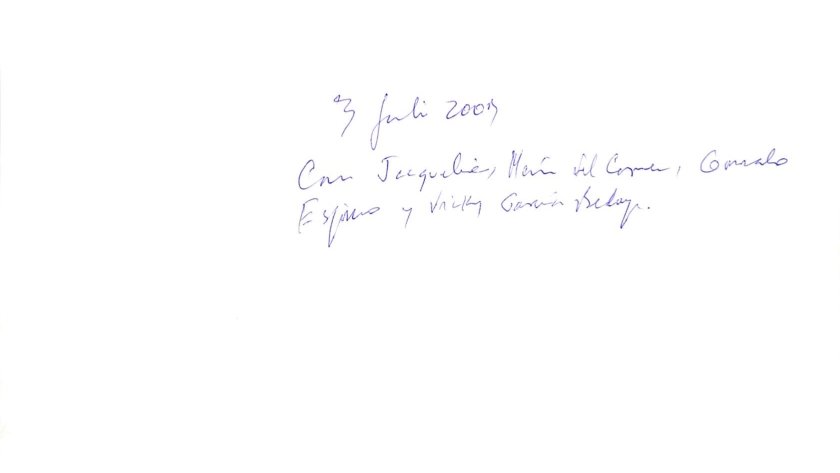 3 Juli 2009
Con Jacqueline, María del Carmen, Gonzalo
Espino y Vicky García